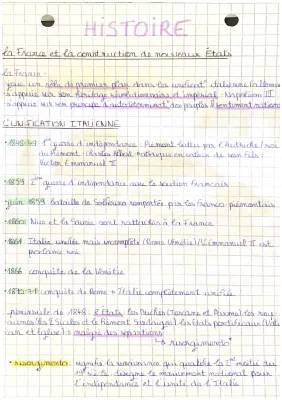 HISTOIRE
La France et la construction de nouveaux États
La France :
- joue un rôle de premier plan dans les unificat° italienne
- s'appuie sur son héritage révolutionnaire et impérial Napoléon III
- s'appuie sur son principe d'autodéterminat° des peuples
L'UNIFICATION ITALIENNE
• 1848-49 1ère guerre d'indépendance : Piémont battu par l'Autriche / roi
du Piémont : Charles Albert abdique en faveur de son fils :
Victor Emmanuel II
• 1859 guerre d'indépendance avec le soutien français
• juin 1859 bataille de Solférino remportée par les franco piémontais
• 1860 Nice et la Savoie sont rattachés à la France
• 1861 Italie unifiée mais incomplète (Rome Vénétie) V. Emmanuel II est
proclamé roi
• 1866 conquête de la Vénétie
• 1870-71 conquête de Rome + Italie complètement unifiée
péninsule de 1848 : 8 États les Duchés (Toscane et Parme) les roy
aumes (les 2 Siciles et le Piémont Sardaigne) les États pontificaux
malgré des séparations
↳ risorgimento
• risorgimento : signifie la renaissance qui qualifie la moitié du
19e siècle désigne le mouvement national pour
l'indépendance et l'unité de l'Italie